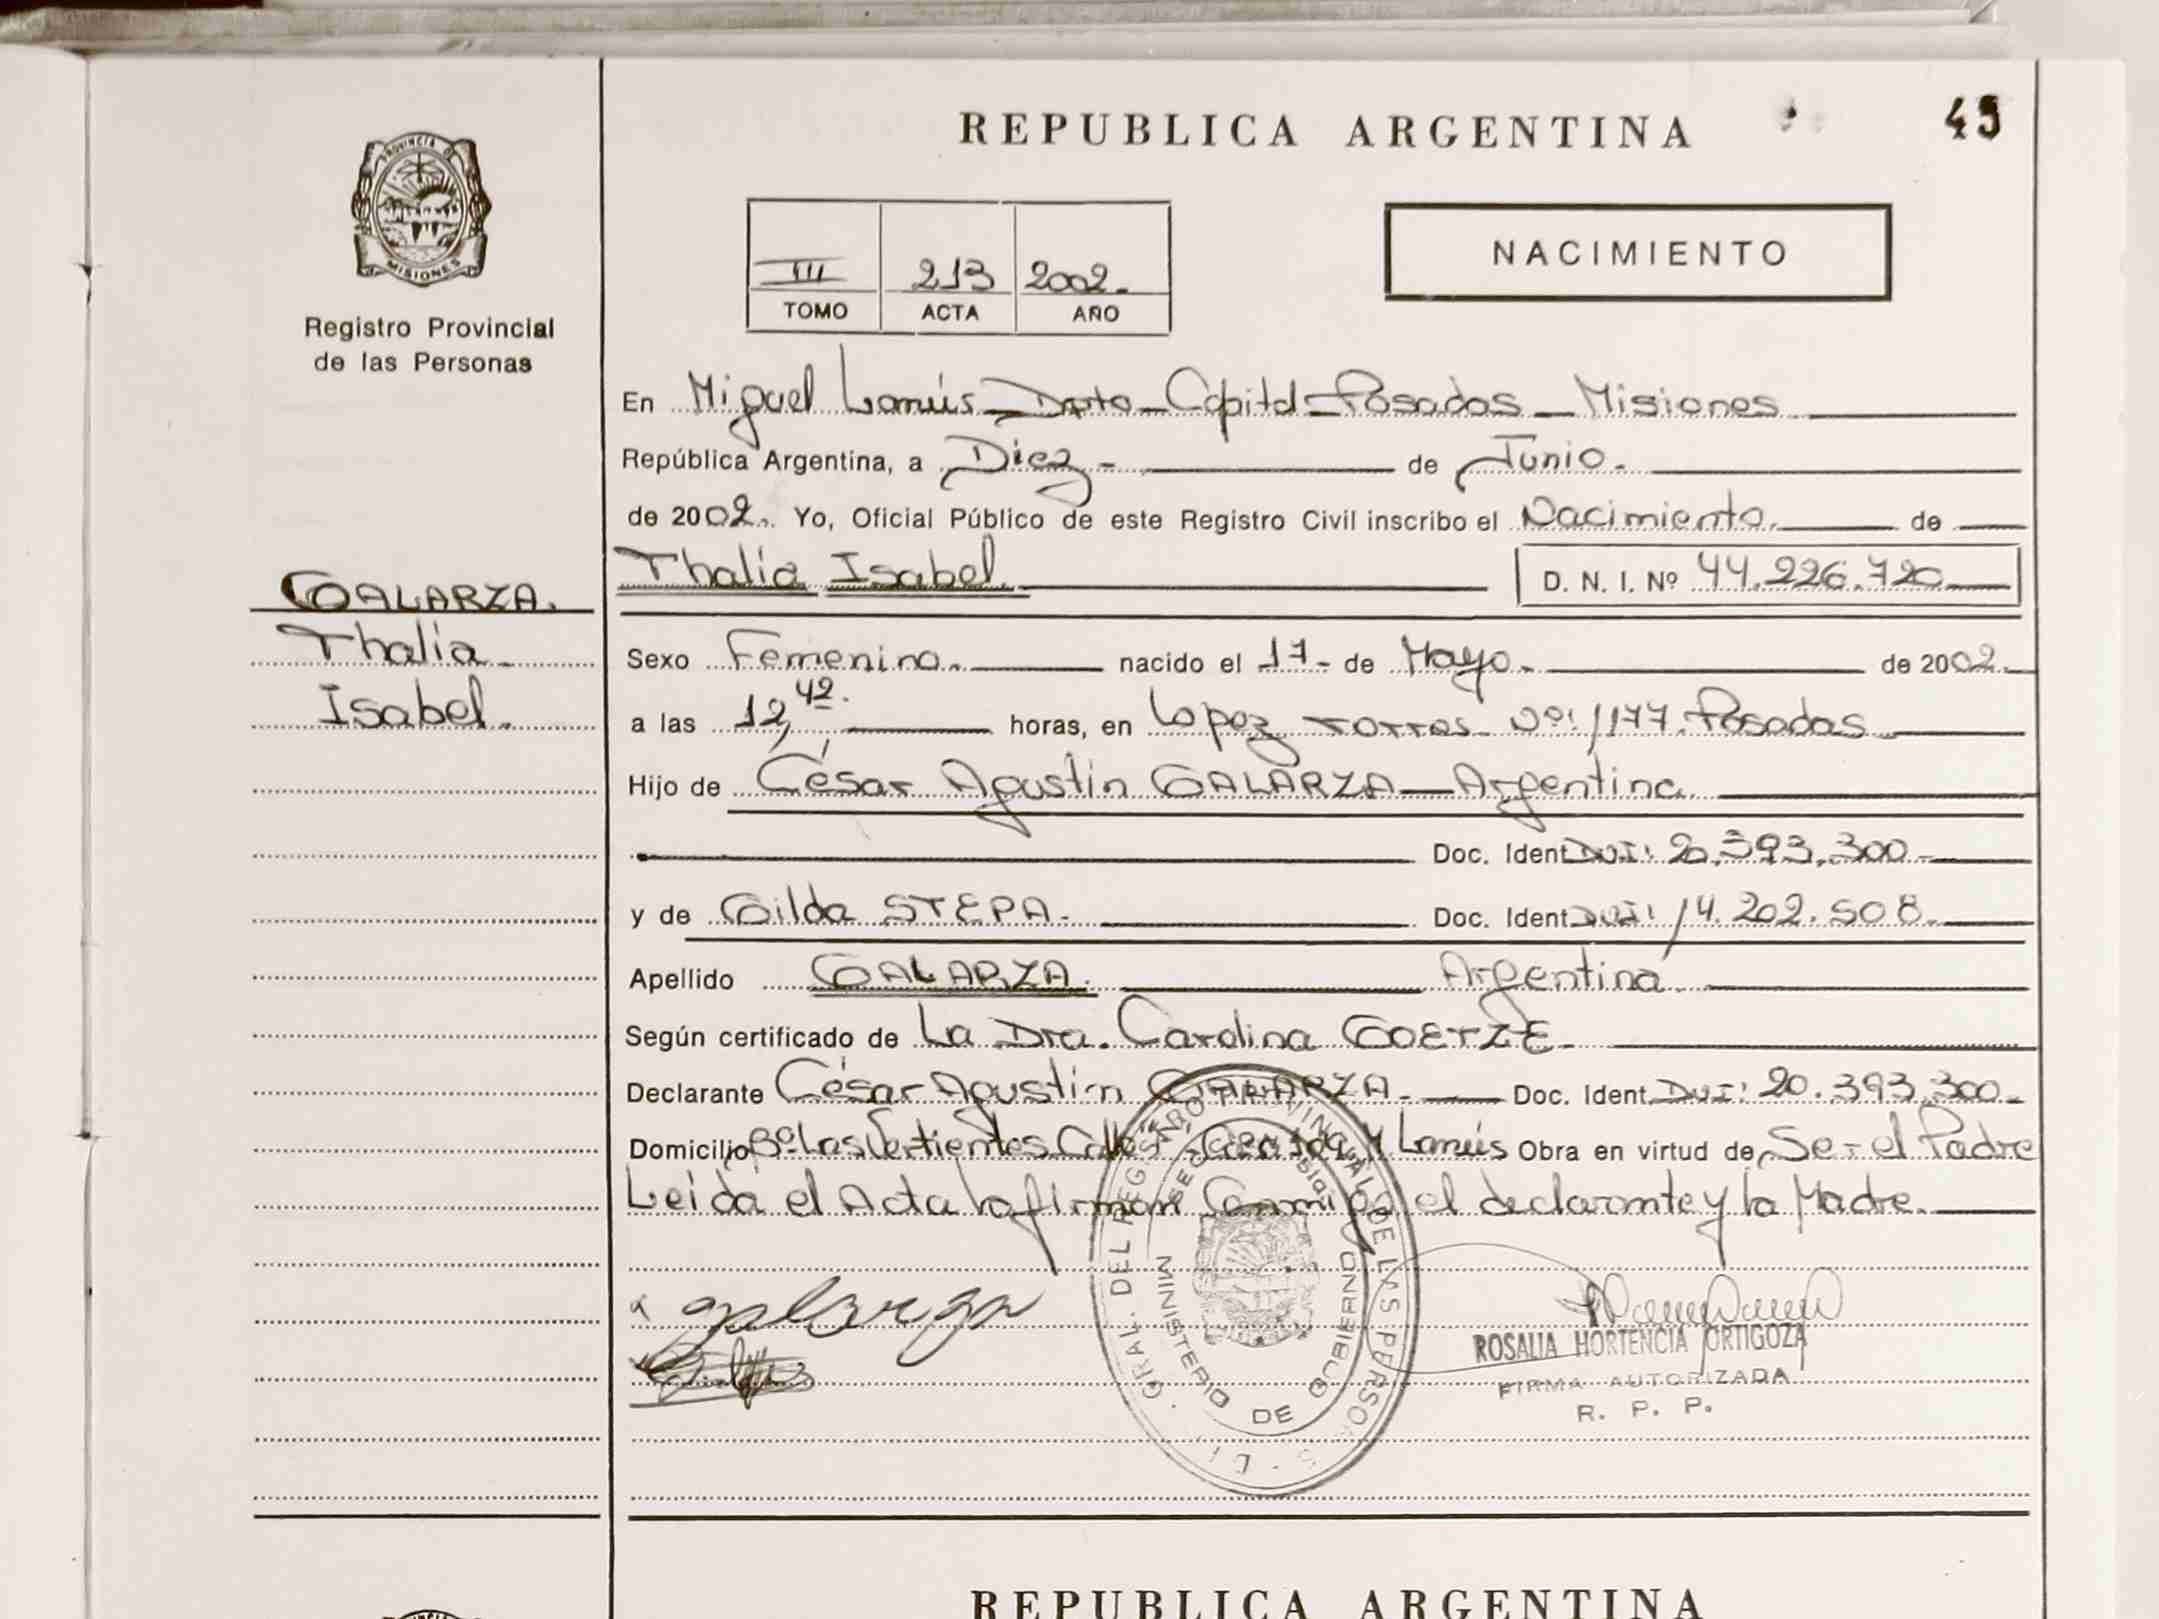 REPUBLICA ARGENTINA
49
PROVINCIA DE
MISIONES
Registro Provincial
de las Personas
III 213 2002.
TOMO ACTA AÑO
NACIMIENTO
En Miguel Lanús - Dpto - Capital - Posadas - Misiones
República Argentina, a Diez - de Junio.
de 2002. Yo, Oficial Público de este Registro Civil inscribo el Nacimiento. de
Thalia Isabel. D. N. I. Nº 44.226.720
GALARZA.
Thalia
Isabel.
Sexo Femenino. nacido el 17 - de Mayo. de 2002.
a las 12,42. horas, en Lopez Torres Nº: 1177. Posadas
Hijo de César Agustín GALARZA - Argentina
Doc. Ident DNI: 20.393.300
y de Gilda STEPA. Doc. Ident DNI: 14.202.508.
Apellido GALARZA. Argentina.
Según certificado de La Dra. Carolina GOETZE
Declarante César Agustín GALARZA. Doc. Ident. DNI: 20.393.300
Domicilio Bº Las Vertientes Calle Lanús Obra en virtud de Ser el Padre
Leida el Acta la firman Conmigo el declarante y la Madre.
galarza
GRAL. DEL REGISTRO PROVINCIAL DE LAS PERSONAS
MINISTERIO DE GOBIERNO
ROSALIA HORTENCIA ORTIGOZA
FIRMA AUTORIZADA
R. P. P.
REPUBLICA ARGENTINA